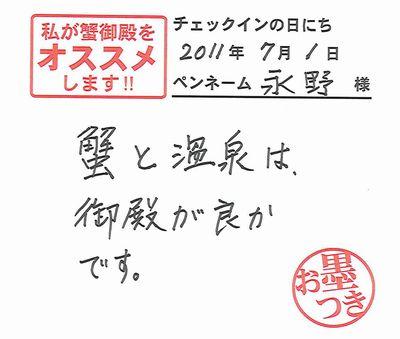 私が蟹御殿を
オススメ
します!!
チェックインの日にち
2011年 7月 1日
ペンネーム 永野 様
蟹と温泉は、
御殿が良か
です。
お墨つき